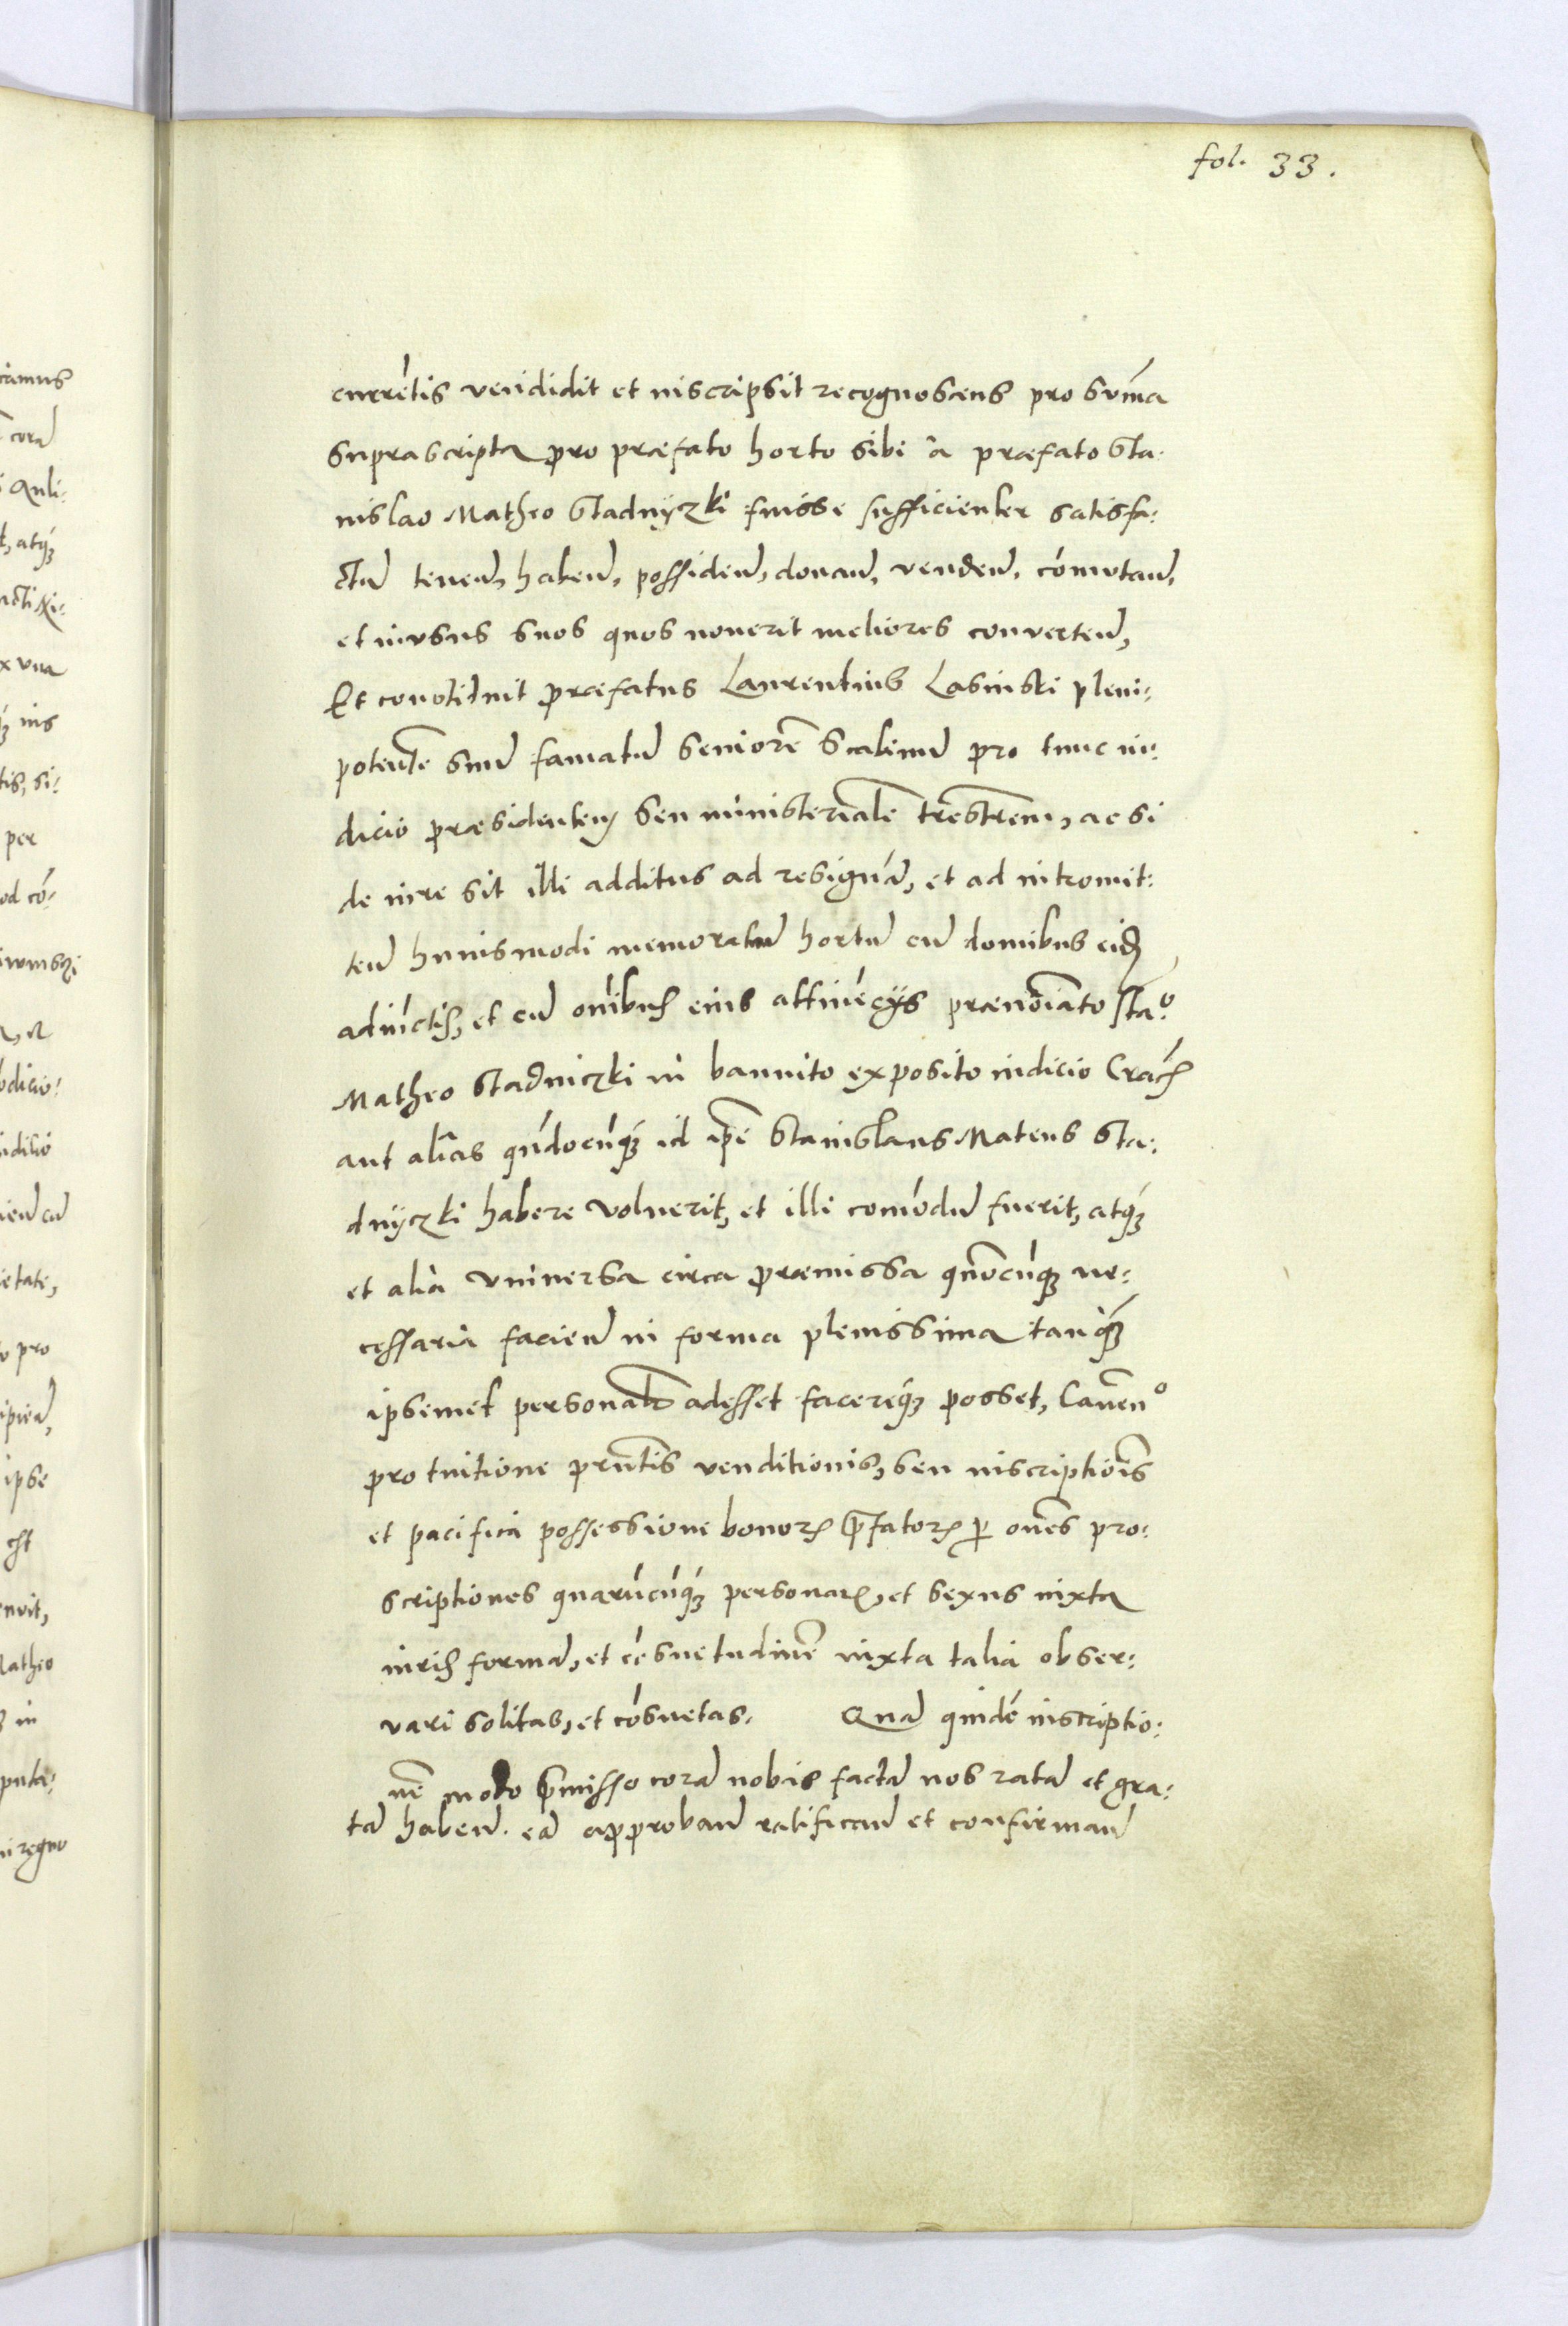 fol. 33.
currētis vendidit et inscripsit recognoscens pro sūma
suprascripta pro præfato horto sibi a præfato Sta:
nislao Matheo Stadnyczki fuisse sufficienter satisfa:
ctū tenend, habend, possidend, donand, vendend, cōmutand,
et in usus suos quos noverit meliores convertend,
Et constituit præfatus Laurentius Lasinski pleni:
potentē suū famatū seniorē Scabinū pro tunc iu:
dicio præsidentem seu ministerialē trēstrem, ac si
de iure sit illi additus ad resignād, et ad intromit:
tend huiusmodi memoratum hortū cū domibus eidē
adiūctis, et cū omībus eius attinēcÿs prænoīato Stao
Matheo Stadniczki in bannito exposito iudicio Crac̄
aut aliās qūdocūq; id ipē Stanislaus Mateus Sta:
dnÿczki habere voluerit, et illi comōdū fuerit, atq;
et alia universa circa præmissa qūocūq; ne:
cessaria faciend in forma plenissima tanq̄
ipsemet personal̄r adesset facereq; posset, Cavendo
pro tuitione pr̄ntis venditionis, seu inscriptiōis
et pacifica possessione bonoꝝ p̄fatoꝝ ꝑ om̄es pro:
scriptiones quarūcūq; personaꝝ, et sexus iuxta
iuris formā, et cōsuetudinē iuxta talia obser:
vari solitas, et cōsuetas. Quā quidē inscriptio:
nē modo p̄misso corā nobis factā nos ratā et gra:
tā habend. eā approband ratificand et confirmand